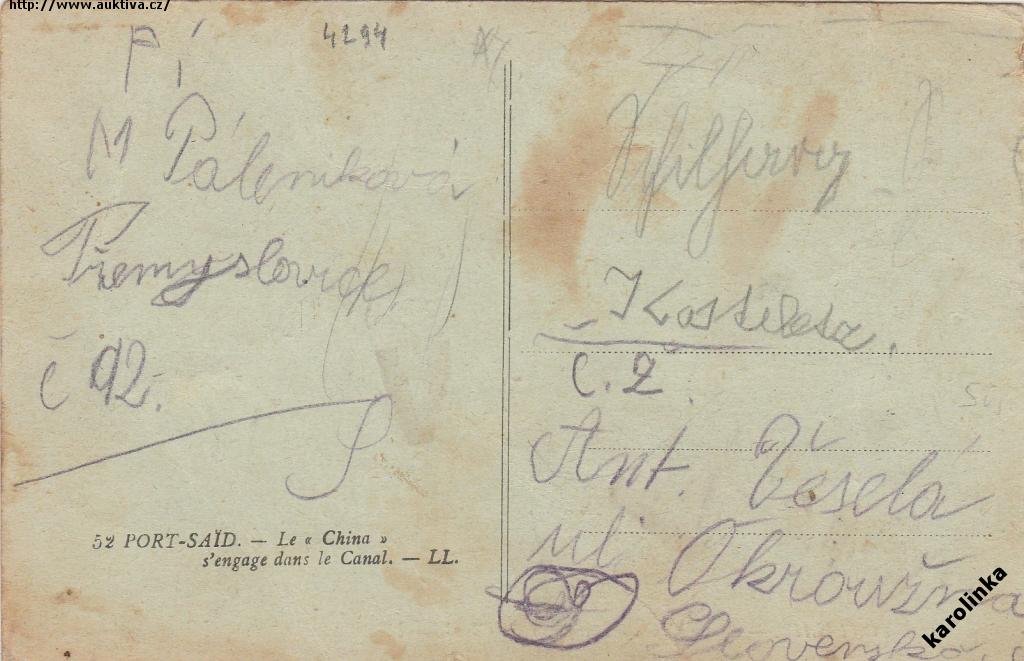 http://www.auktiva.cz/
4294
Pí
M Páleníková
Přemyslovce
č 92.
52 PORT-SAÏD. — Le « China »
s'engage dans le Canal. — LL.
Kostelesa.
č. 2
Ant. Veselá
ul Okroužná
Slovensko
karolinka